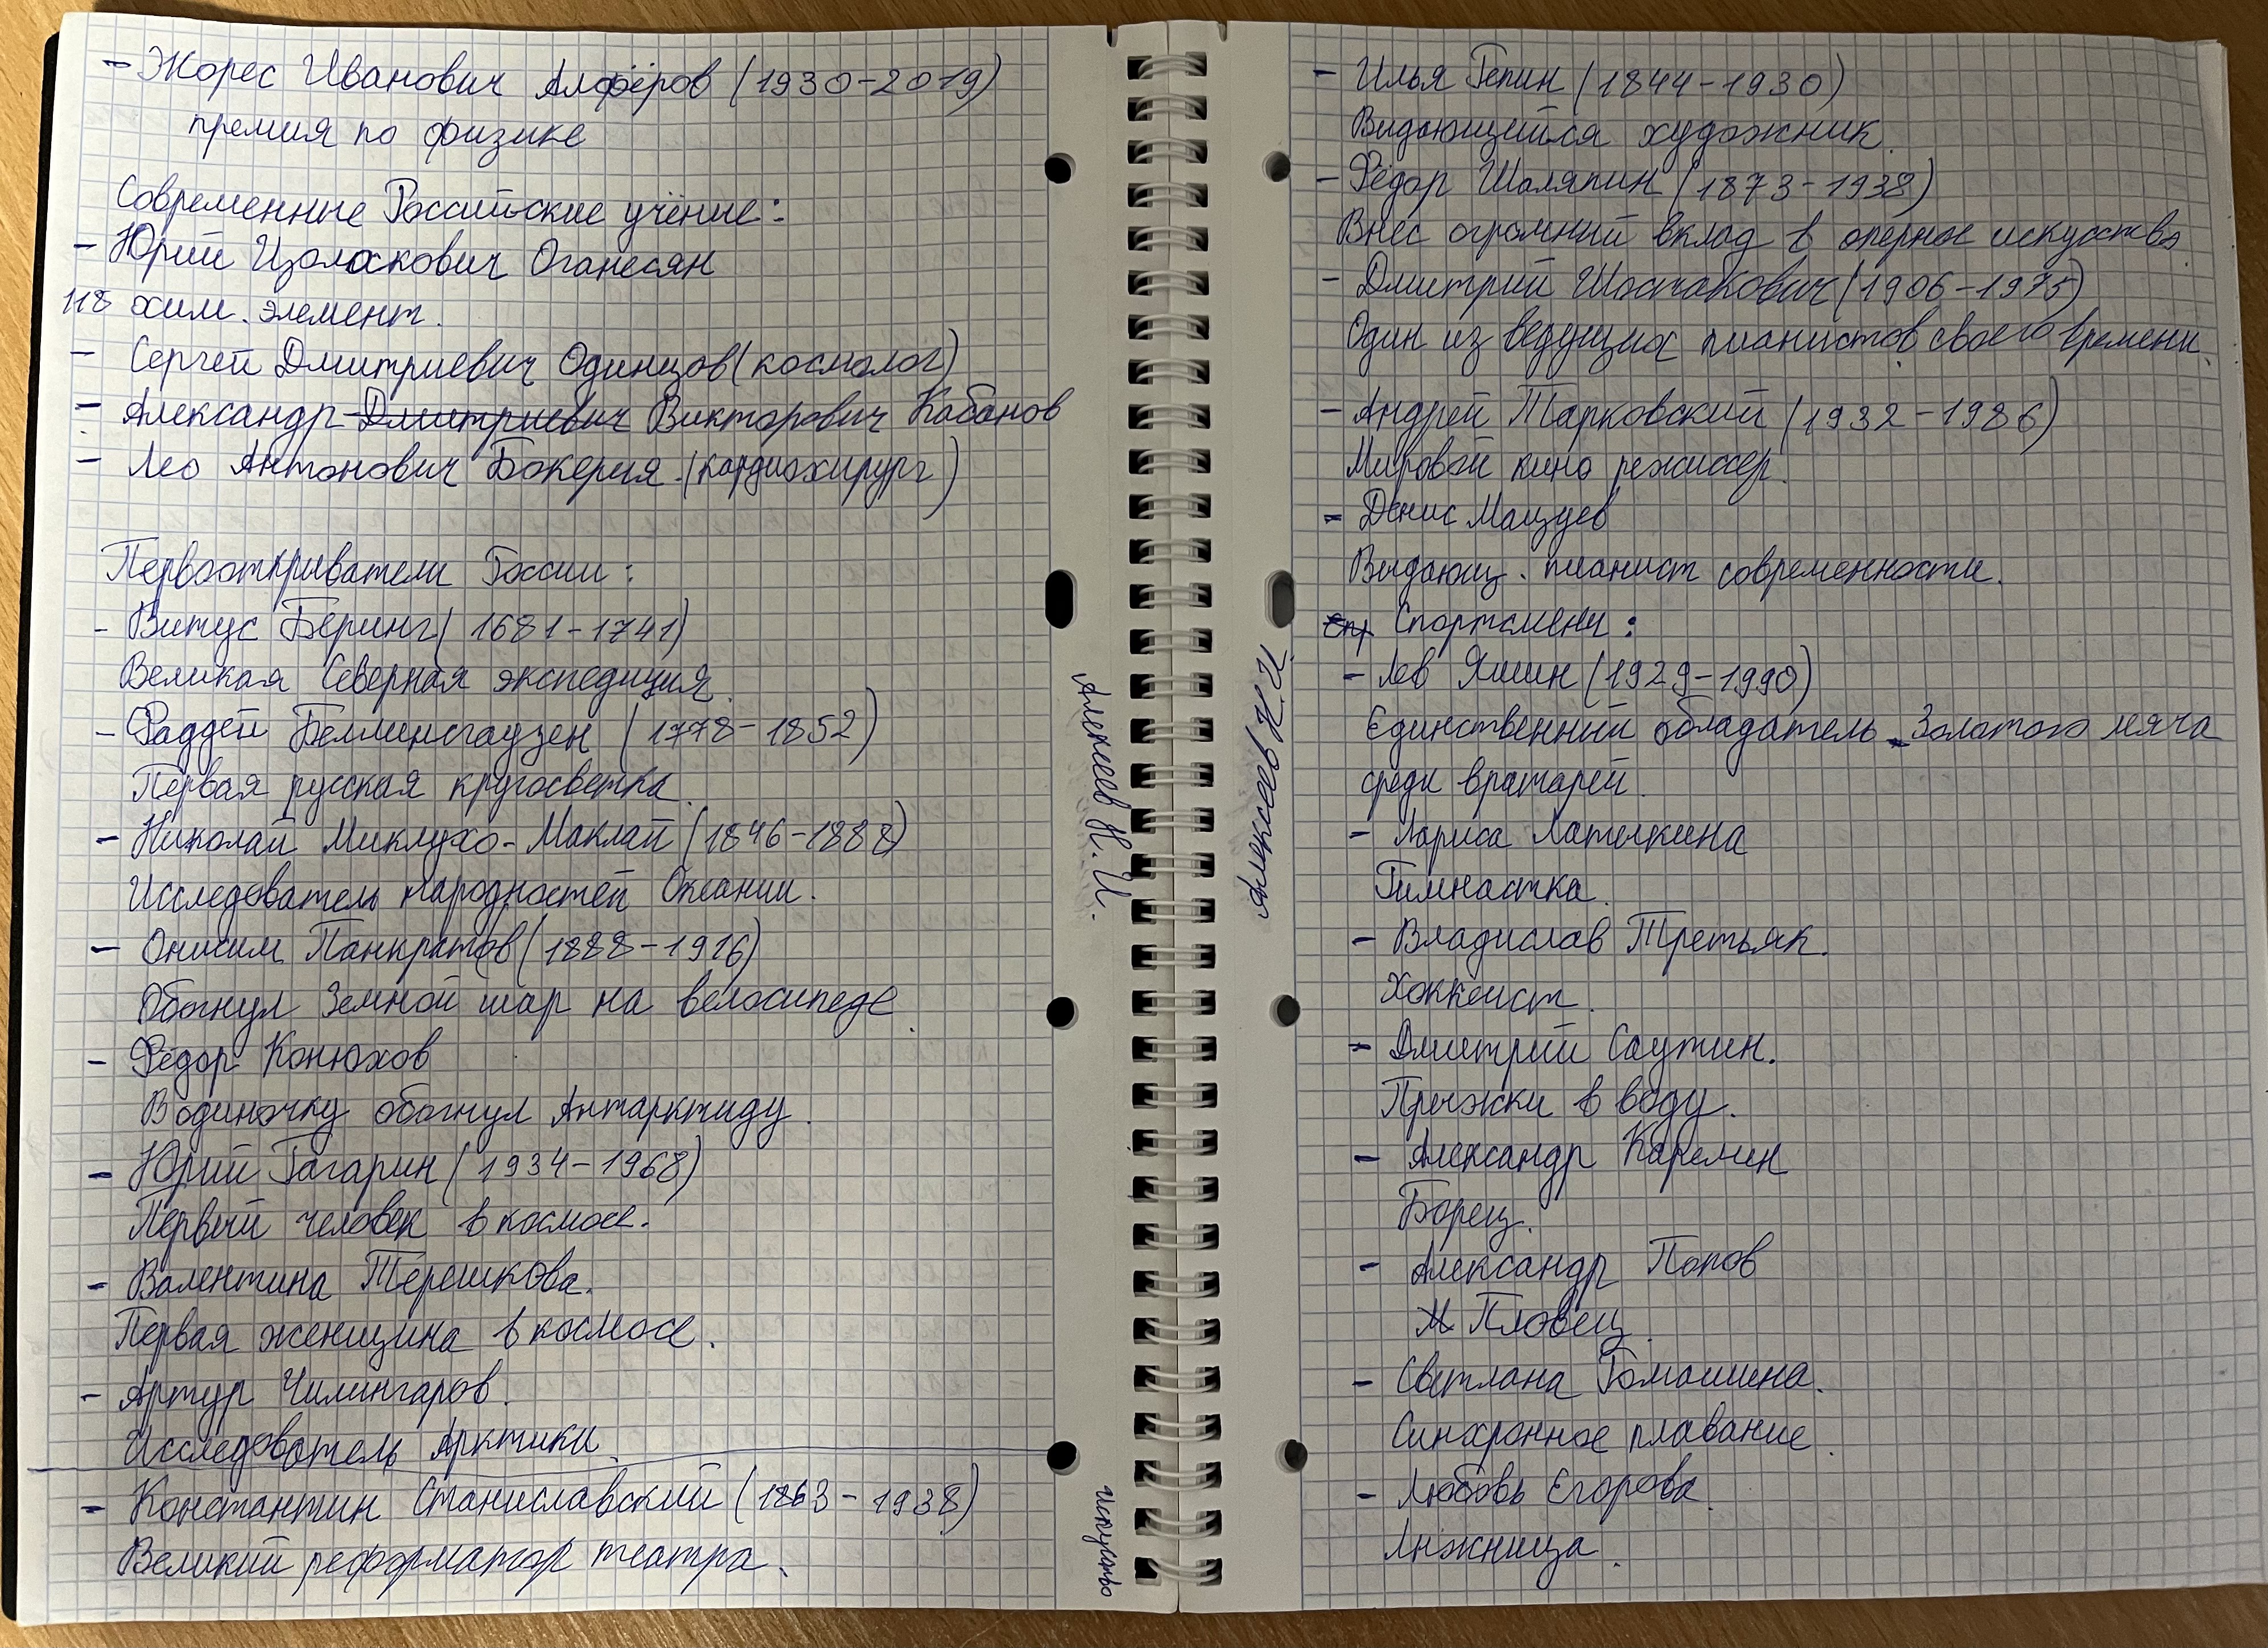 - Жорес Иванович Алфёров (1930-2019)
премия по физике
Современные Российские учёные:
- Юрий Цолакович Оганесян
118 хим. элемент.
- Сергей Дмитриевич Одинцов (космолог)
- Александр Дмитриевич Викторович Кабанов
- Лео Антонович Бокерия. (кардиохирург)
Первооткрыватели России:
- Витус Беринг (1681-1741)
Великая Северная экспедиция.
- Фаддей Беллинсгаузен (1778-1852)
Первая русская кругосветка.
- Николай Миклухо-Маклай (1846-1888)
Исследователь народностей Океании.
- Онисим Панкратов (1888-1916)
Обогнул Земной шар на велосипеде.
- Фёдор Конюхов
В одиночку обогнул Антарктиду.
- Юрий Гагарин (1934-1968)
Первый человек в космосе.
- Валентина Терешкова.
Первая женщина в космосе.
- Артур Чилингаров.
Исследователь Арктики.
- Константин Станиславский (1863-1938)
Великий реформатор театра.
Алексеев Н. И.
Искусство
Алексеев Н. И.
- Илья Репин (1844-1930)
Видающийся художник.
- Фёдор Шаляпин (1873-1938)
Внёс огромный вклад в оперное искусство.
- Дмитрий Шостакович (1906-1975)
Один из ведущих пианистов своего времени.
- Андрей Тарковский (1932-1986)
Мировой кино режиссер.
- Денис Мацуев
Выдающ. пианист современности.
Сп Спортсмены:
- Лев Яшин (1929-1990)
Единственный обладатель Золотого мяча
среди вратарей.
- Лариса Латыкина
Гимнастка.
- Владислав Третьяк.
Хоккеист.
- Дмитрий Саутин.
Прыжки в воду.
- Александр Карелин
Борец.
- Александр Попов
Пловец.
- Светлана Ромашина.
Синхронное плавание.
- Любовь Егорова.
Лыжница.